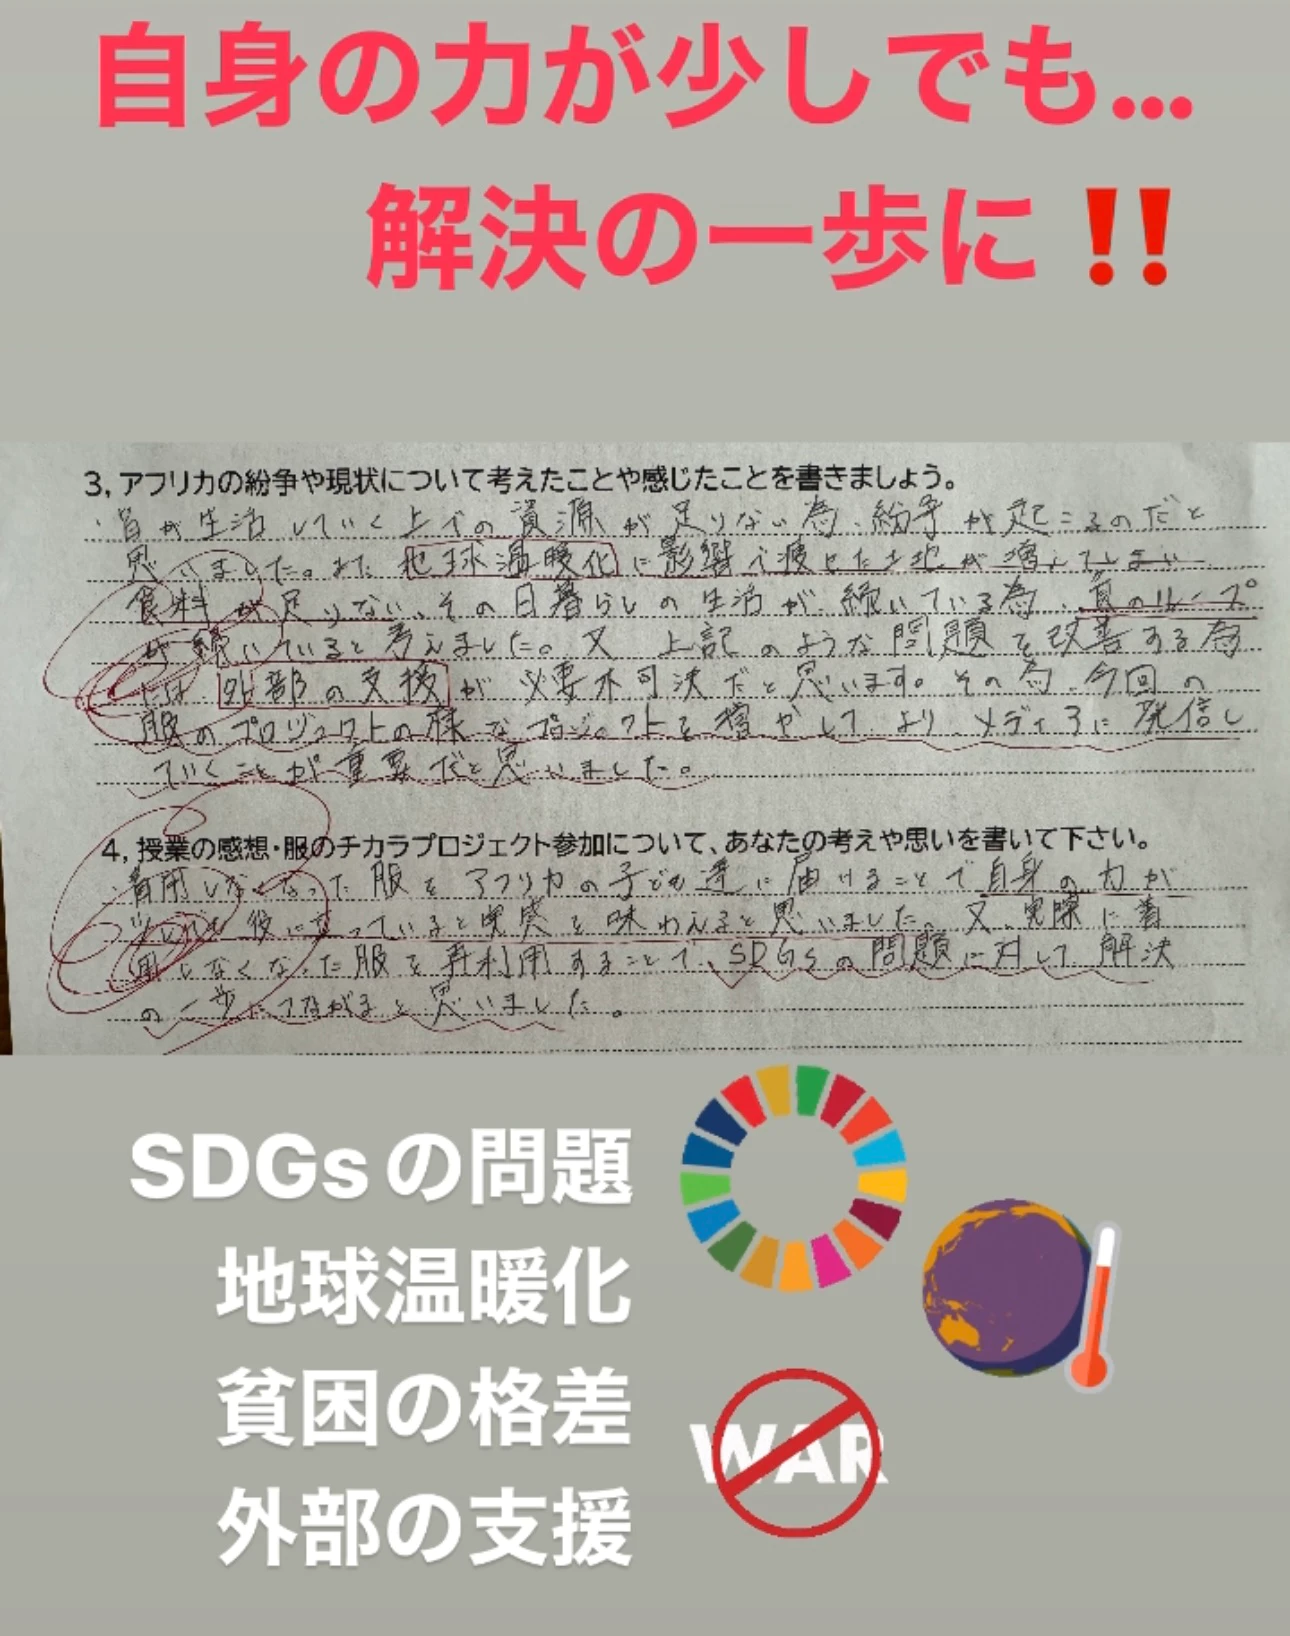 自身の力が少しでも...
解決の一歩に‼
3, アフリカの紛争や現状について考えたことや感じたことを書きましょう。
・皆が生活していく上での資源が足りない為、紛争が起こるのだと
思いました。また地球温暖化に影響で疲せた土地が増えてしまい
食料が足りない、その日暮らしの生活が続いている為、負のループ
が続いていると考えました。又 上記のような問題を改善する為
には、外部の支援が必要不可決だと思います。その為、今回の
服のプロジェクトの様なプロジェクトを増やして、より、メディアに発信し
ていくことが重要だと思いました。
4, 授業の感想・服のチカラプロジェクト参加について、あなたの考えや思いを書いて下さい。
・着用しなくなった服をアフリカの子ども達に届けることで自身の力が
少しでも役に立っていると実感を味わえると思いました。又、実際に着
用しなくなった服を再利用することで、SDGsの問題に対して解決
の一歩につながると思いました。
SDGsの問題
地球温暖化
貧困の格差
WAR
外部の支援